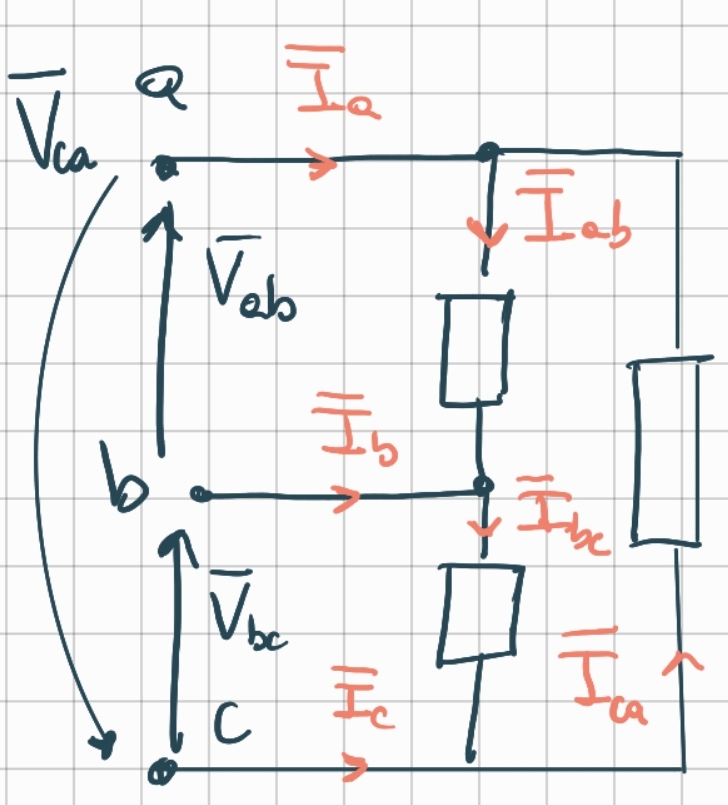 V̅ca
a
I̅a
I̅ab
V̅ab
I̅b
b
I̅bc
V̅bc
I̅ca
I̅c
C